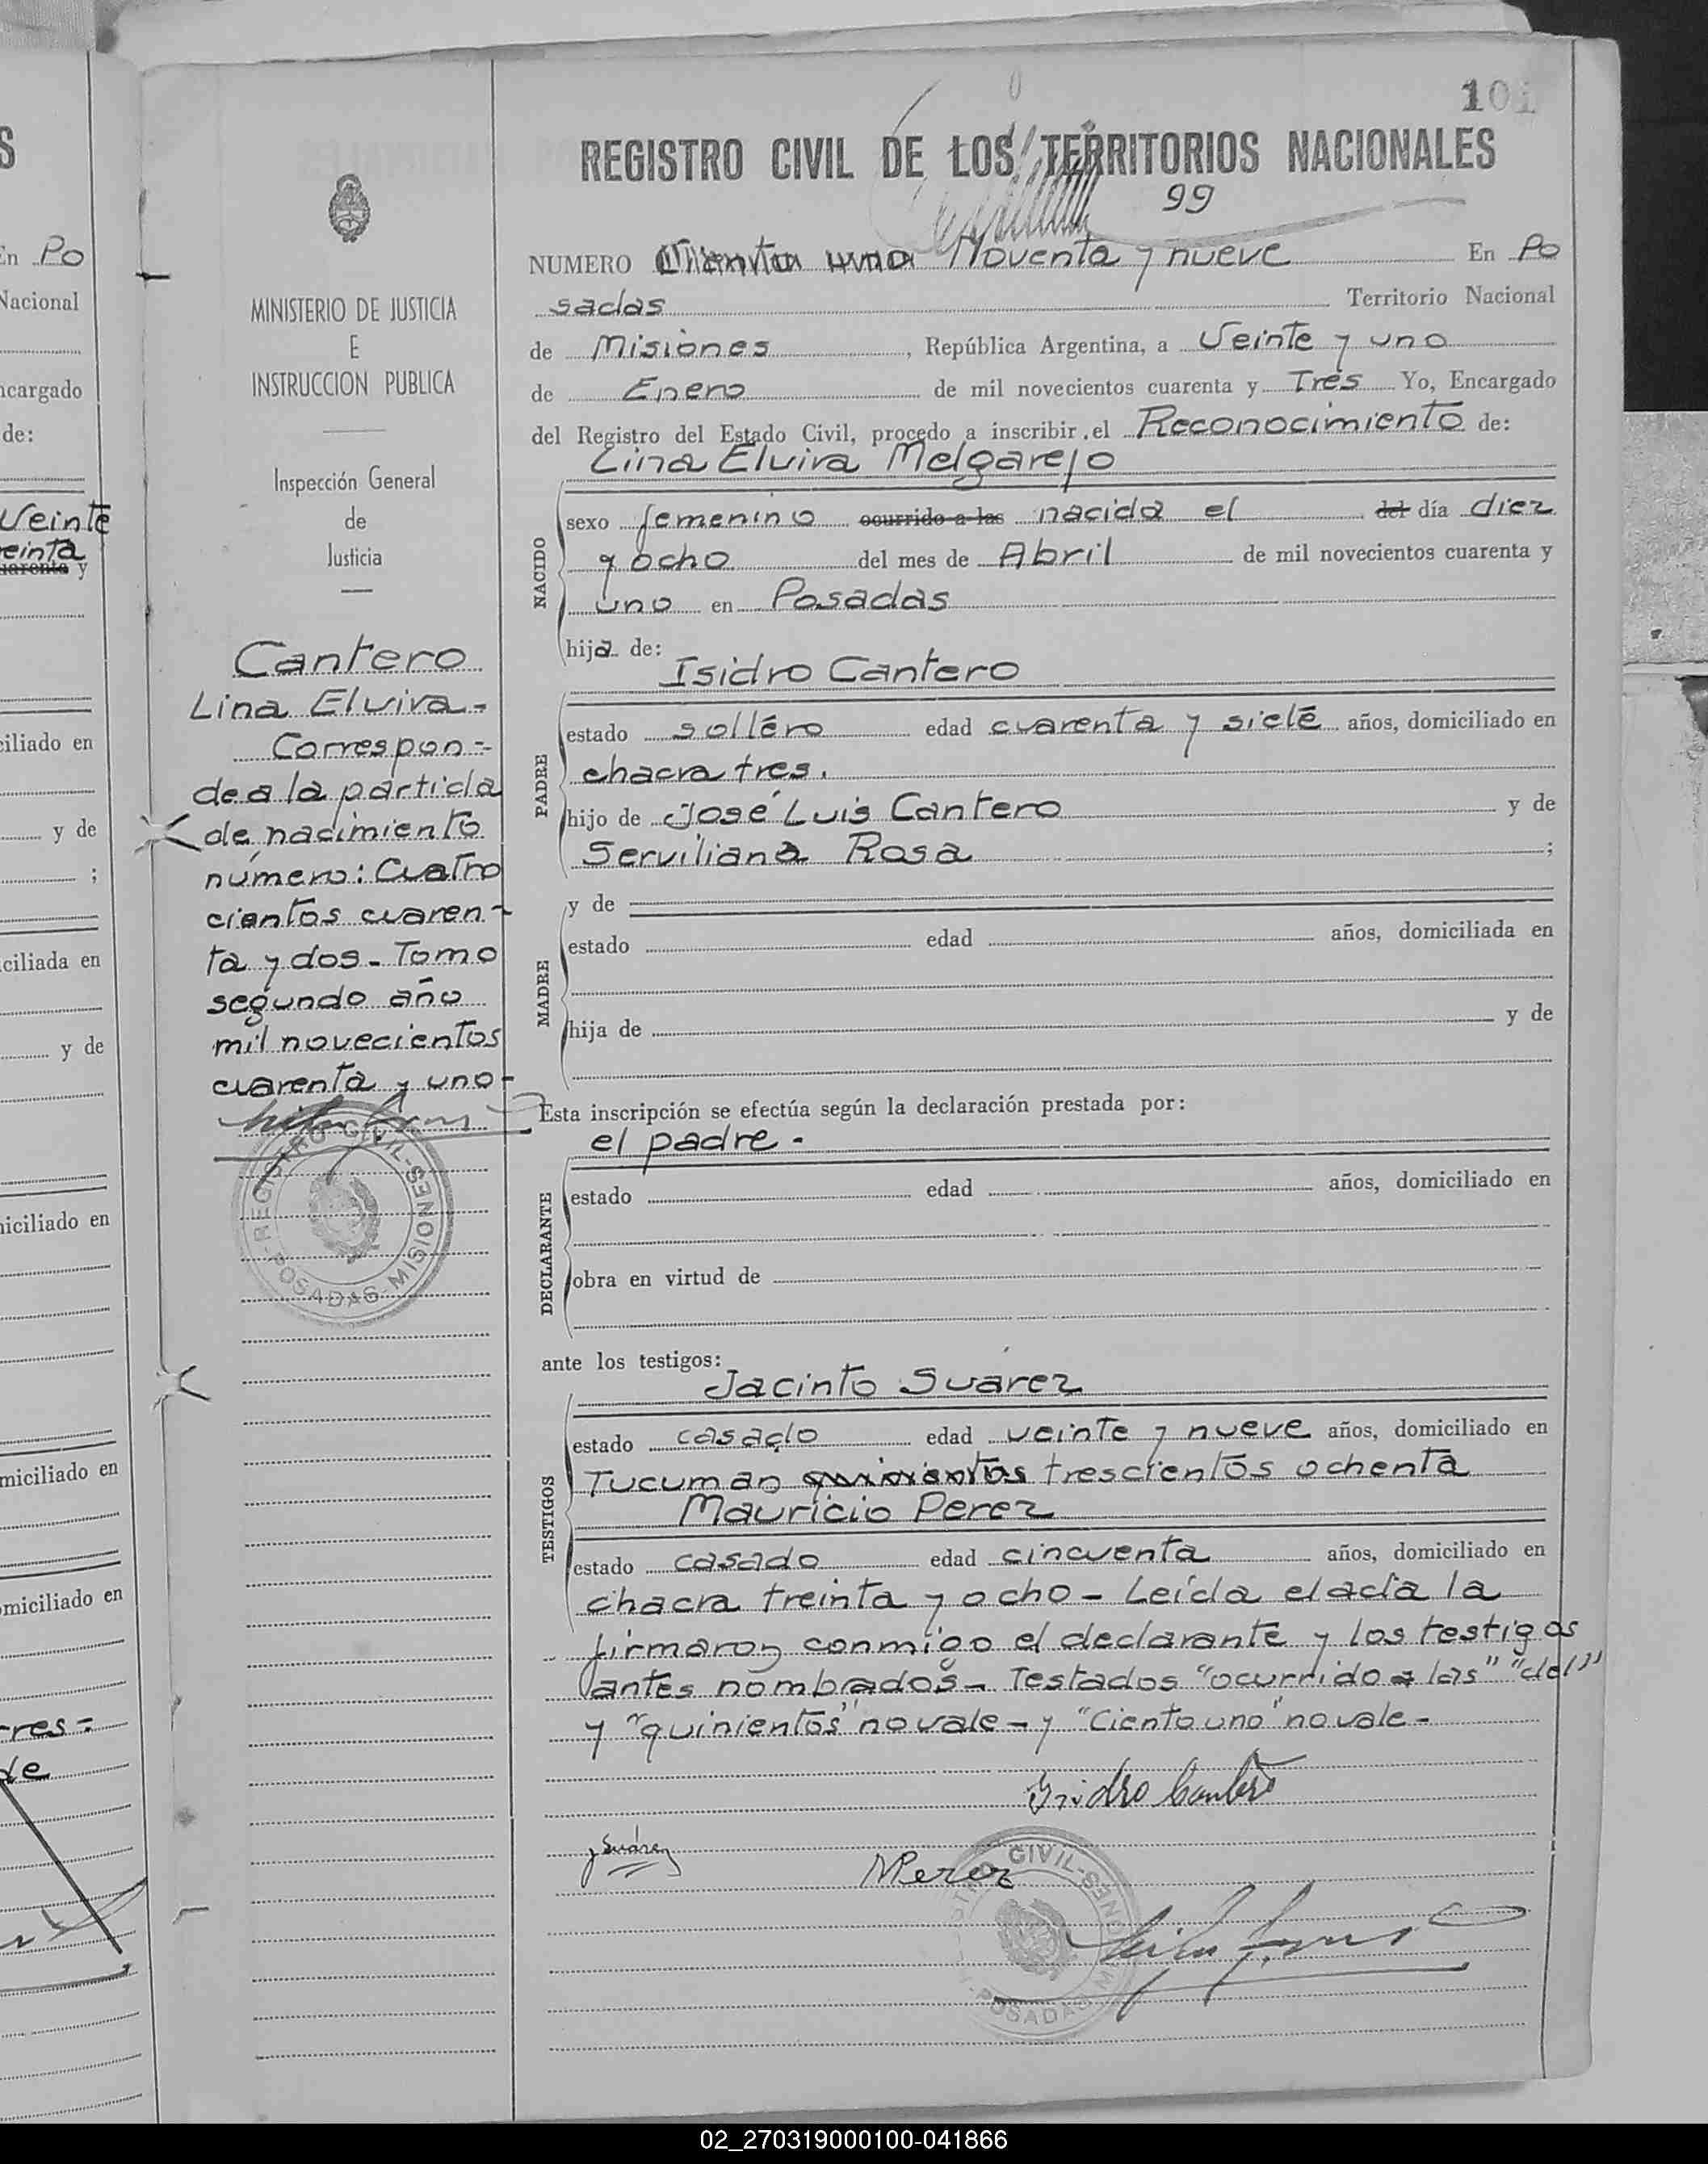 101
REGISTRO CIVIL DE LOS TERRITORIOS NACIONALES
99
NUMERO Ciento uno Noventa y nueve En Po
sadas Territorio Nacional
de Misiones, República Argentina, a Veinte y uno
de Enero de mil novecientos cuarenta y Tres Yo, Encargado
del Registro del Estado Civil, procedo a inscribir el Reconocimiento de:
Lina Elvira Melgarejo
NACIDO
sexo femenino ocurrido a las nacida el del día diez
y ocho del mes de Abril de mil novecientos cuarenta y
uno en Posadas
hija de:
Isidro Cantero
PADRE
estado soltero edad cuarenta y siete años, domiciliado en
chacra tres.
hijo de José Luis Cantero y de
Serviliana Rosa ;
MADRE
y de
estado edad años, domiciliada en
hija de y de
Esta inscripción se efectúa según la declaración prestada por:
el padre.
DECLARANTE
estado edad años, domiciliado en
obra en virtud de
ante los testigos:
Jacinto Suarez
TESTIGOS
estado casado edad veinte y nueve años, domiciliado en
Tucuman quinientos trescientos ochenta
Mauricio Perez
estado casado edad cincuenta años, domiciliado en
chacra treinta y ocho - Leída el acta la
firmaron conmigo el declarante y los testigos
antes nombrados - Testados "ocurrido a las" "del"
y "quinientos" no vale - y "Ciento uno" no vale -
Isidro Cantero
J Suárez
MPerez
CIVIL-
MISIONES
POSADAS
MINISTERIO DE JUSTICIA
E
INSTRUCCION PUBLICA
Inspección General
de
Justicia
Cantero
Lina Elvira -
Correspon-
de a la partida
de nacimiento
número: Cuatro
cientos cuaren-
ta y dos - Tomo
segundo año
mil novecientos
cuarenta y uno -
REGISTRO CIVIL-
POSADAS-MISIONES
S
En Po
Nacional
ncargado
de:
Veinte
einta
uarenta y
iliado en
y de
;
ciliada en
y de
niciliado en
miciliado en
omiciliado en
rres-
de
02_270319000100-041866